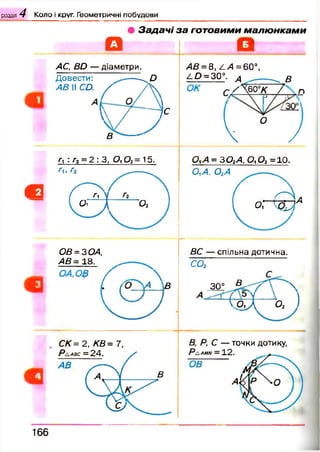 розділ 4 Коло і круг. Геометричні побудови
Задачі за готовими малюнками
а б
1
AC, BD — діаметри.
Довести:
AB II CD.
A O D C B
AB = 8, ∠A = 60°,
∠D = 30°.
OK
A B C 60° K D 30° O
2
r₁ : r₂ = 2 : 3, O₁O₂ = 15.
r₁, r₂
r₁ r₂
O₁ O₂
O₁A = 3O₂A, O₁O₂ = 10.
O₁A, O₂A
O₁ O₂ A
3
OB = 3OA,
AB = 18.
OA, OB
O A B
BC — спільна дотична.
CO₂
C
30° B
A 5
O₁ O₂
4
CK = 2, KB = 7,
P△ABC = 24.
AB
A B
K
C
B, P, C — точки дотику,
P△AMN = 12.
OB
B M
A P O
N C
166